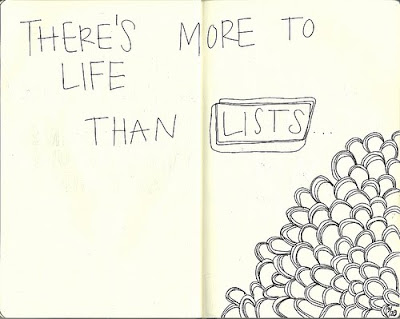 THERE'S MORE TO
LIFE
THAN LISTS...